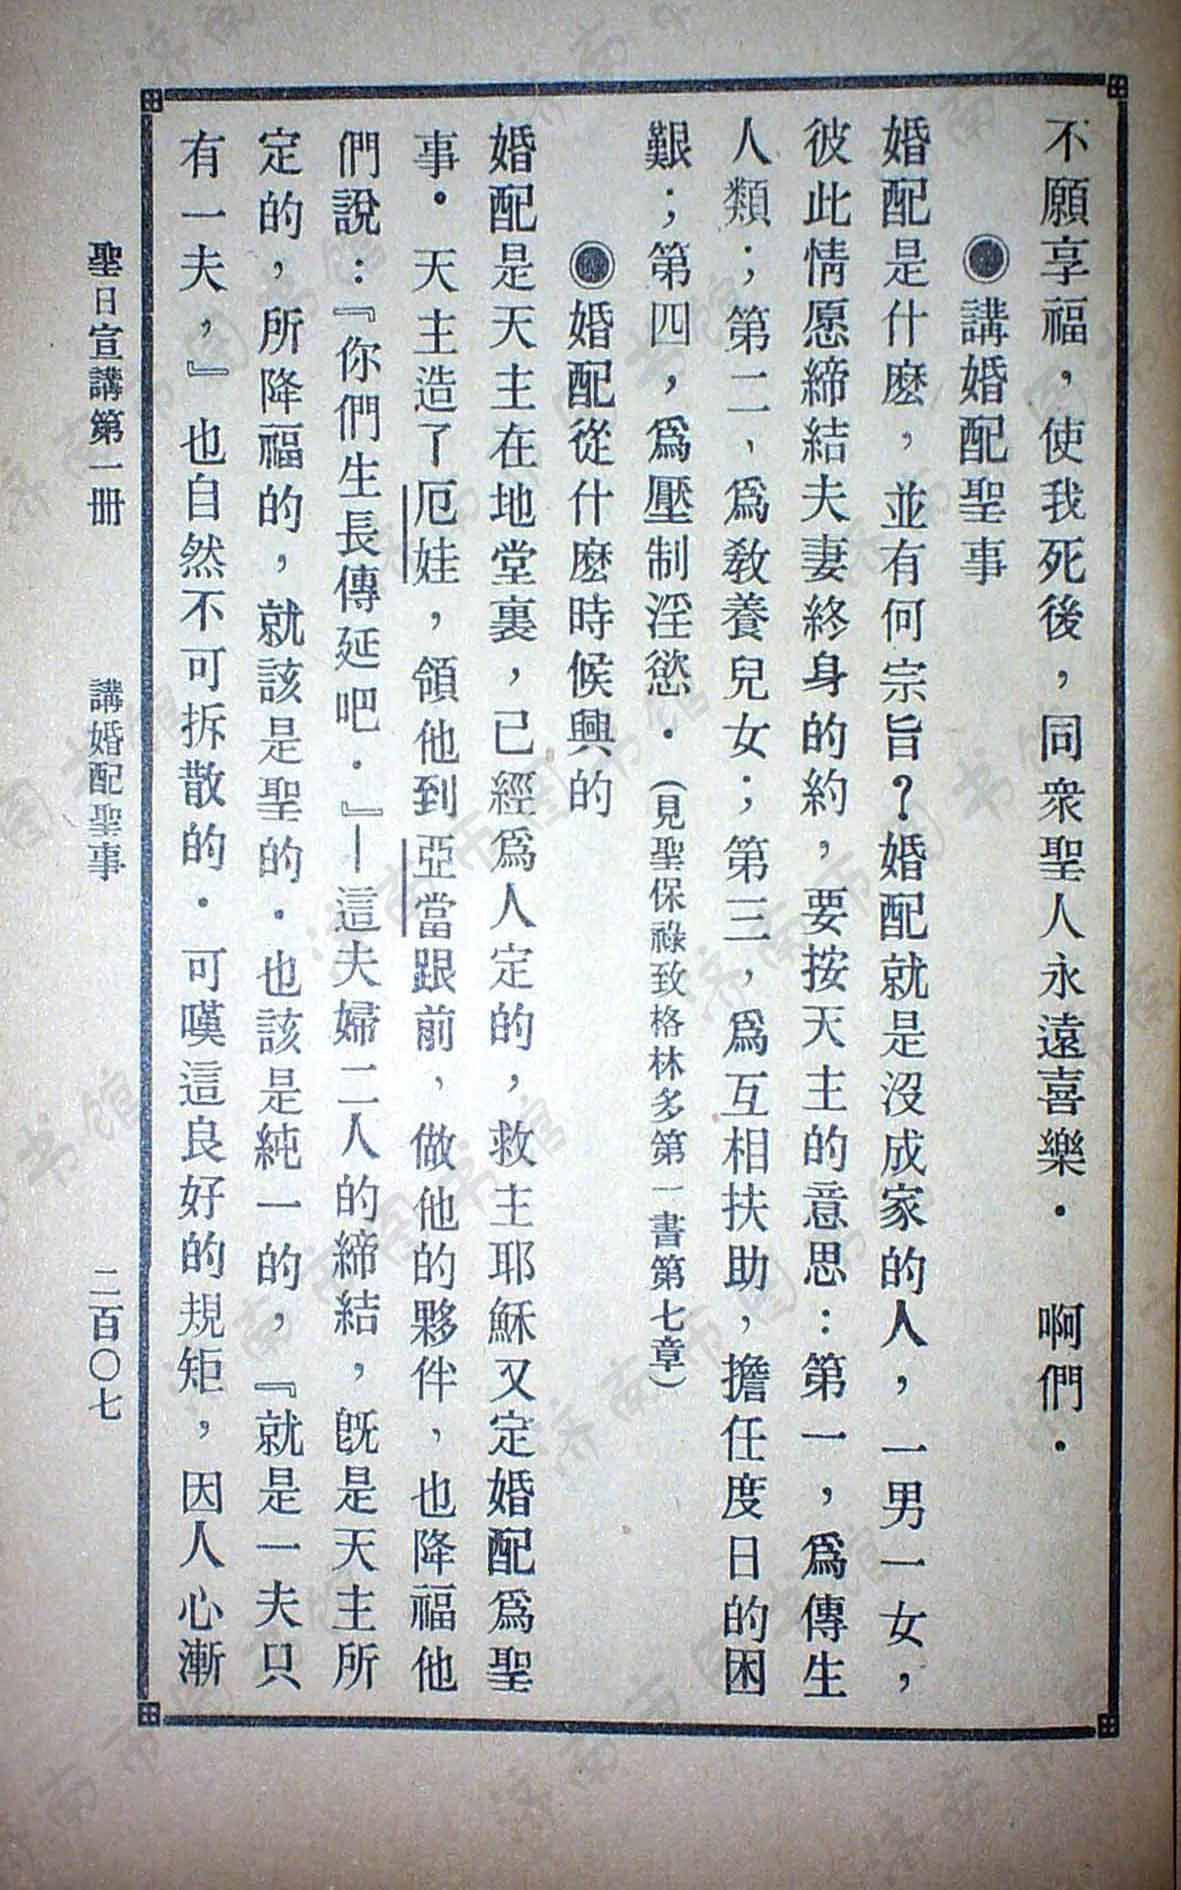 不願享福，使我死後，同衆聖人永遠喜樂．　啊們．
◉講婚配聖事
婚配是什麽，並有何宗旨？婚配就是沒成家的人，一男一女，
彼此情愿締結夫妻終身的約，要按天主的意思：第一，爲傳生
人類；第二，爲敎養兒女；第三，爲互相扶助，擔任度日的困
艱；第四，爲壓制淫慾．（見聖保祿致格林多第一書第七章）
◉婚配從什麽時候興的
婚配是天主在地堂裏，已經爲人定的，救主耶穌又定婚配爲聖
事．天主造了厄娃，領他到亞當跟前，做他的夥伴，也降福他
們說：『你們生長傳延吧．』—這夫婦二人的締結，旣是天主所
定的，所降福的，就該是聖的．也該是純一的，『就是一夫只
有一夫，』也自然不可拆散的．可嘆這良好的規矩，因人心漸
聖日宣講第一册　講婚配聖事　二百〇七
济南市图书馆